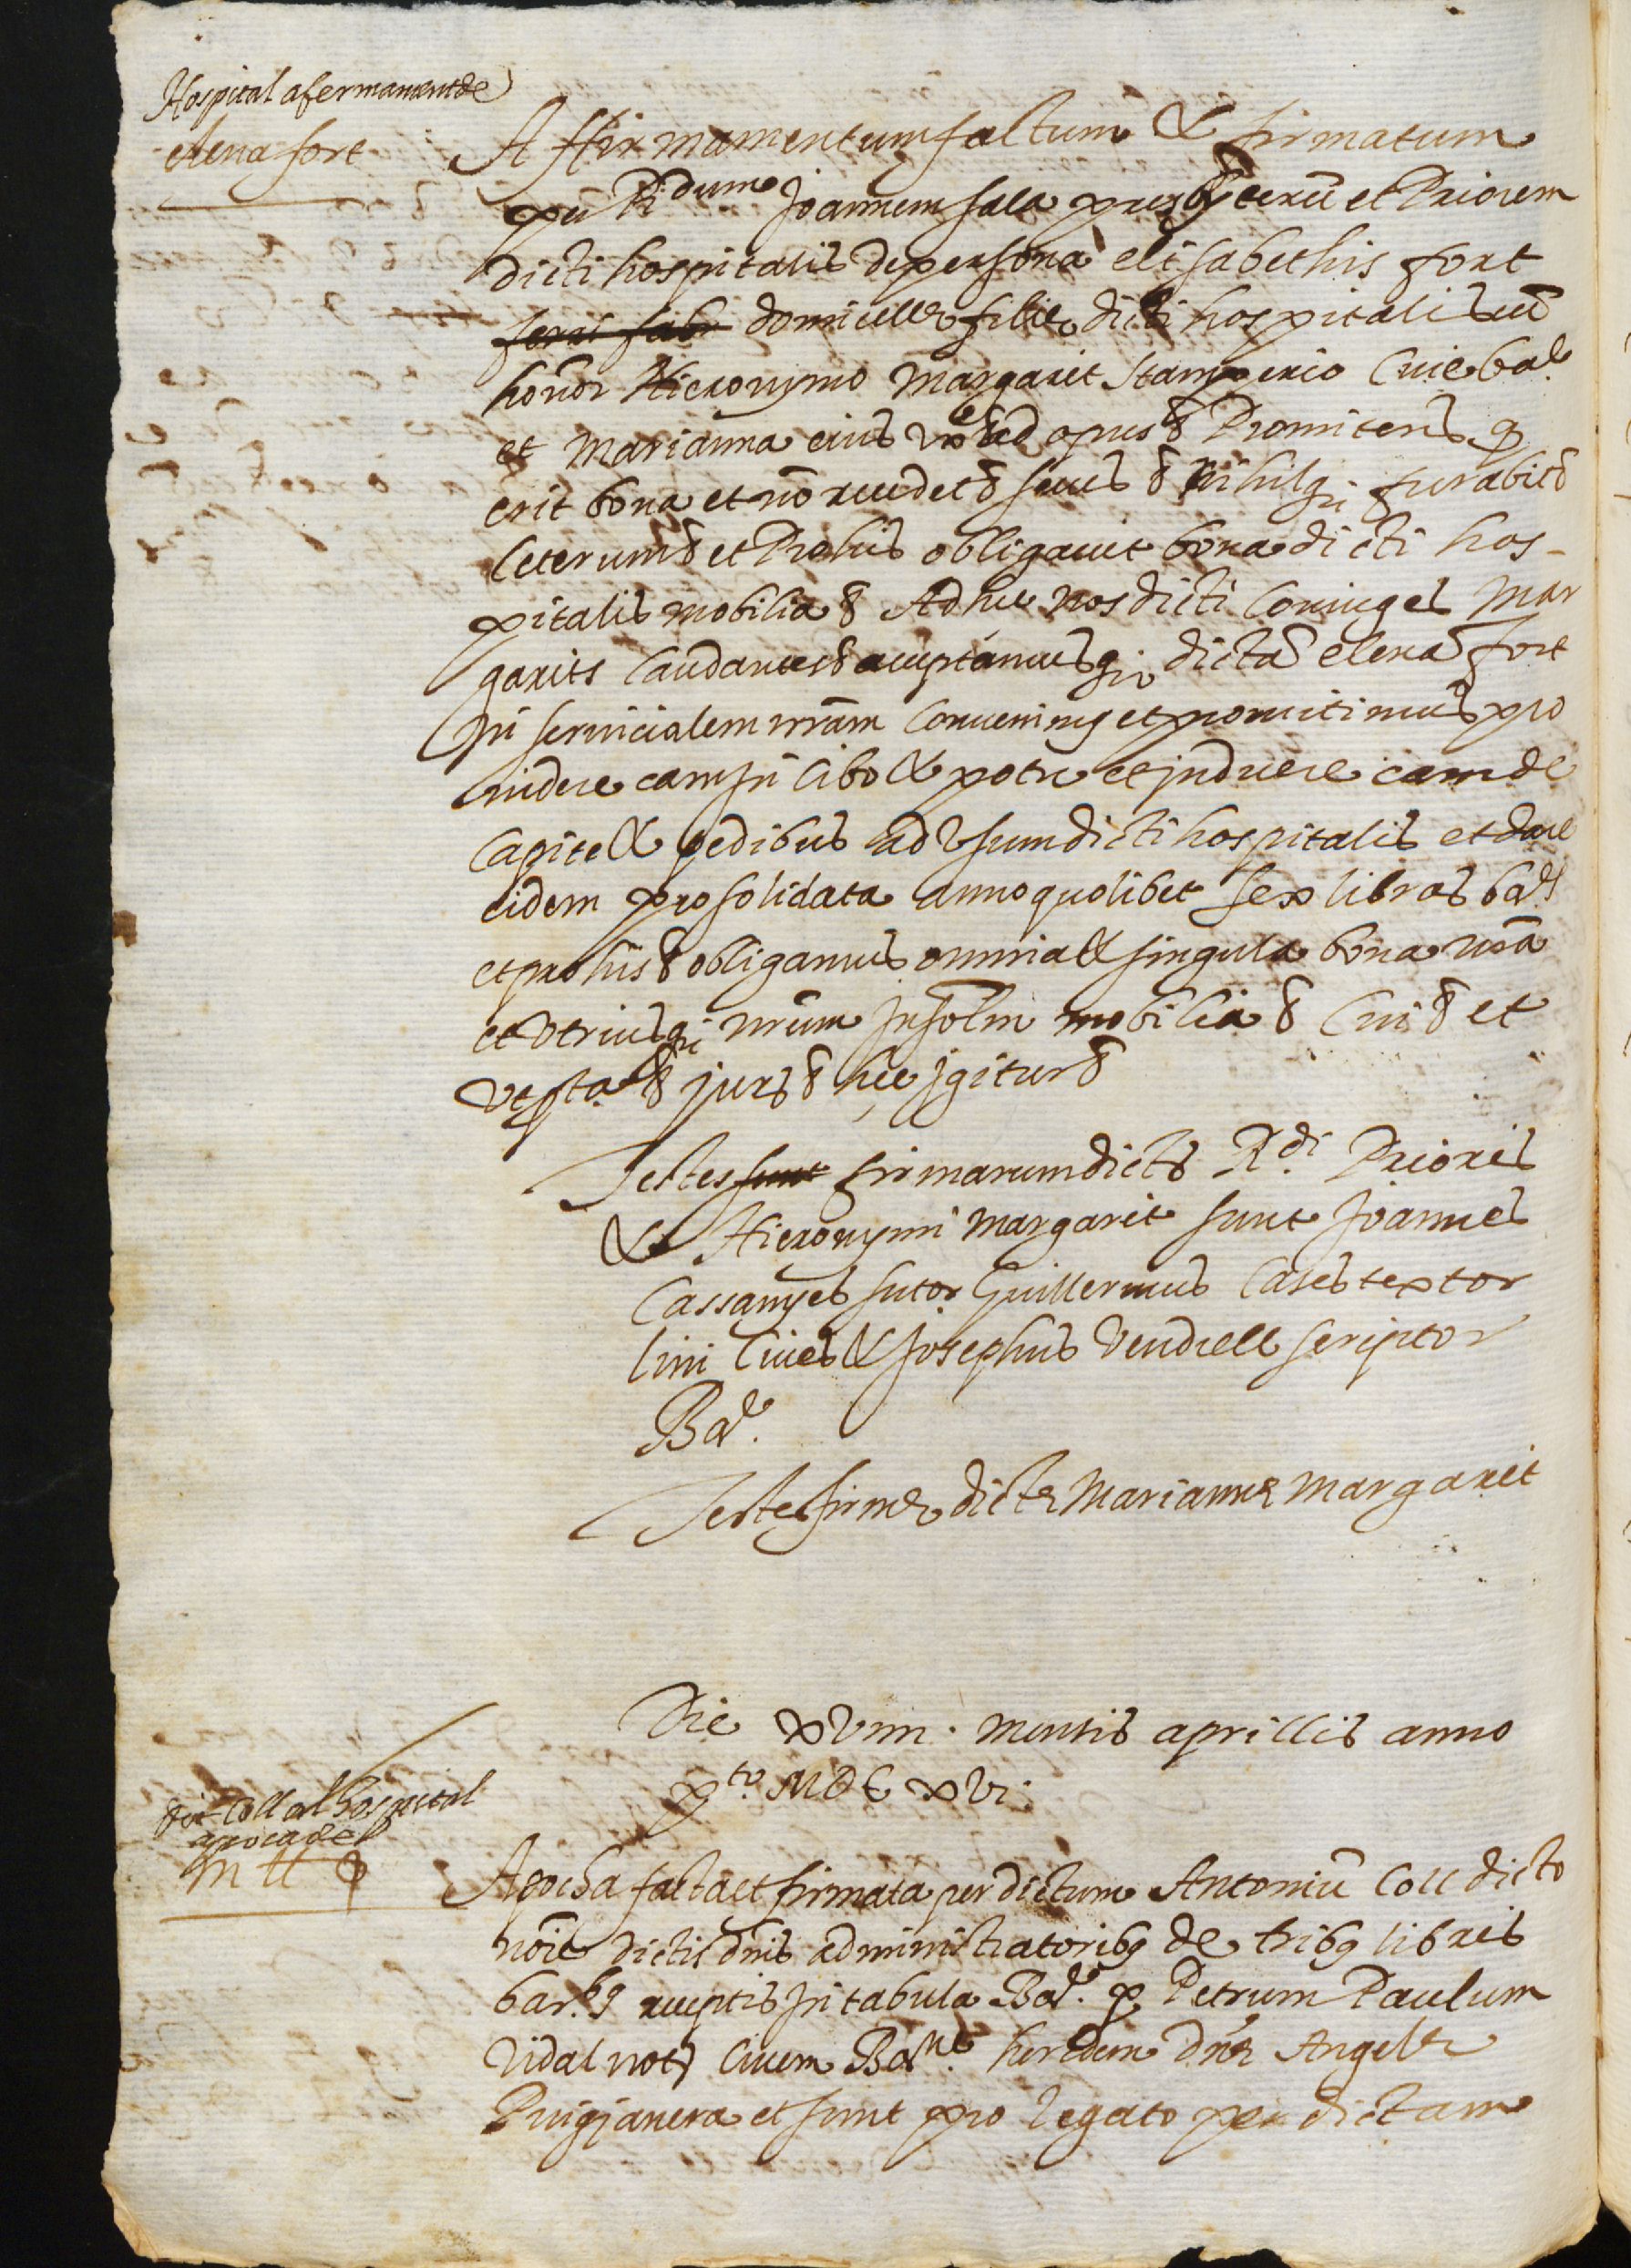 Hospital afermament de
elena fort
Affirmamentum factum & firmatum
per Rdum Joannem sala presbyterū et Priorem
dicti hospitalis de persona elisabethis fort
domicelle filie dicti hospitalis cū
honor Hieronymo Margarit stamperio Cive bar
et Marianna eius vxe ad opus & Promitens q
erit bona et nō recedet & secus & Nihilqȝ furabit &
Ceterum & et Pro his obligavit bona dicti hos-
pitalis mobilia & Ad hec nos dicti Coniuges Mar
garits Laudantes & acceptamusqȝ dictā elenā fort
In servicialem nrām Convenimus et promitimus pro
videre eam in cibo & potu et induere eam de
Capite & pedibus ad vsum dicti hospitalis et dare
eidem pro solidata anno quolibet sex libras bar
et pro his & obligamus omnia & singula bona nrā
et vtriusqȝ nrūm Insolm mobilia & Civi & et
vt sta & jur & hec igitur &
Testes sunt firmarum dicts Rdi Prioris
& Hieronymi Margarit sunt Joannes
Cassanyes sutor Guillermus Cases textor
lini Cives & Josephus Vendrell scriptor
Bar.
Testes firme dicte Marianne Margarit
Die xviiii. mensis aprillis anno
pto. MDC xvi.
Coll al hospital
apoca de
iii ll
Apocha facta et firmata per dictum Antoniū Coll dicto
nōie dictis dnis administratoribȝ de tribȝ libris
barbȝ acceptis In tabula Bar. p Petrum Paulum
Vidal not Civem Barne heredem dne Angele
Puigjanera et sunt pro legato per dictam